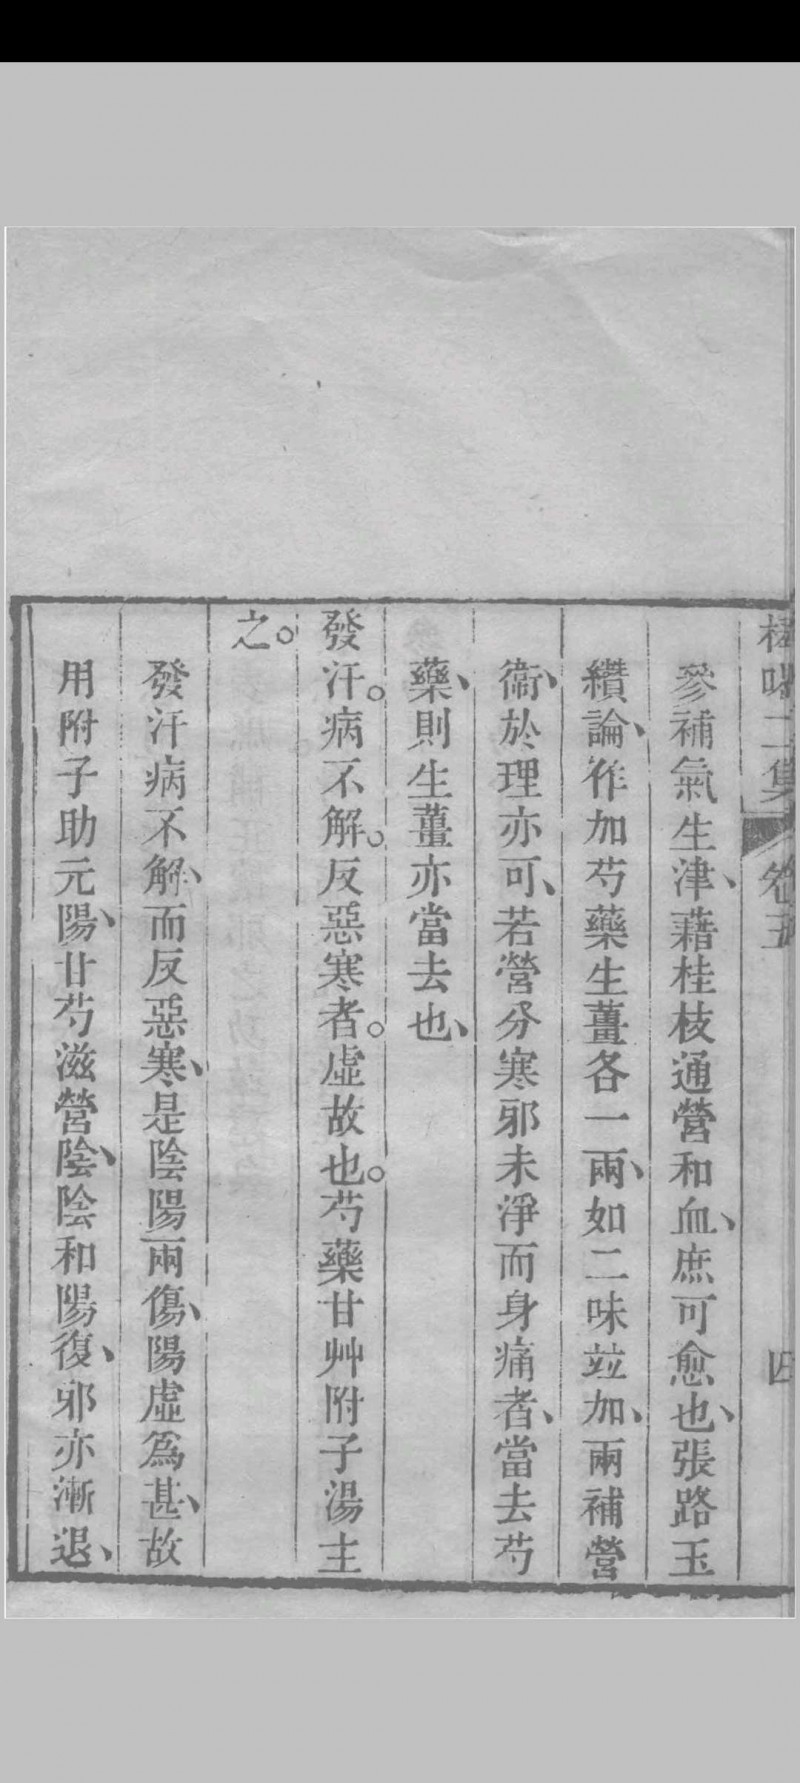 二集 卷五 四
參補氣生津、藉桂枝通營和血、庶可愈也、張路玉
纘論、作加芍藥生薑各一兩、如二味竝加、兩補營
衞、於理亦可、若營分寒邪未淨而身痛者、當去芍
藥、則生薑亦當去也、
發汗。病不解。反惡寒者。虛故也。芍藥甘艸附子湯主
之。
發汗病不解、而反惡寒、是陰陽兩傷、陽虛爲甚、故
用附子助元陽、甘芍滋營陰、陰和陽復、邪亦漸退、